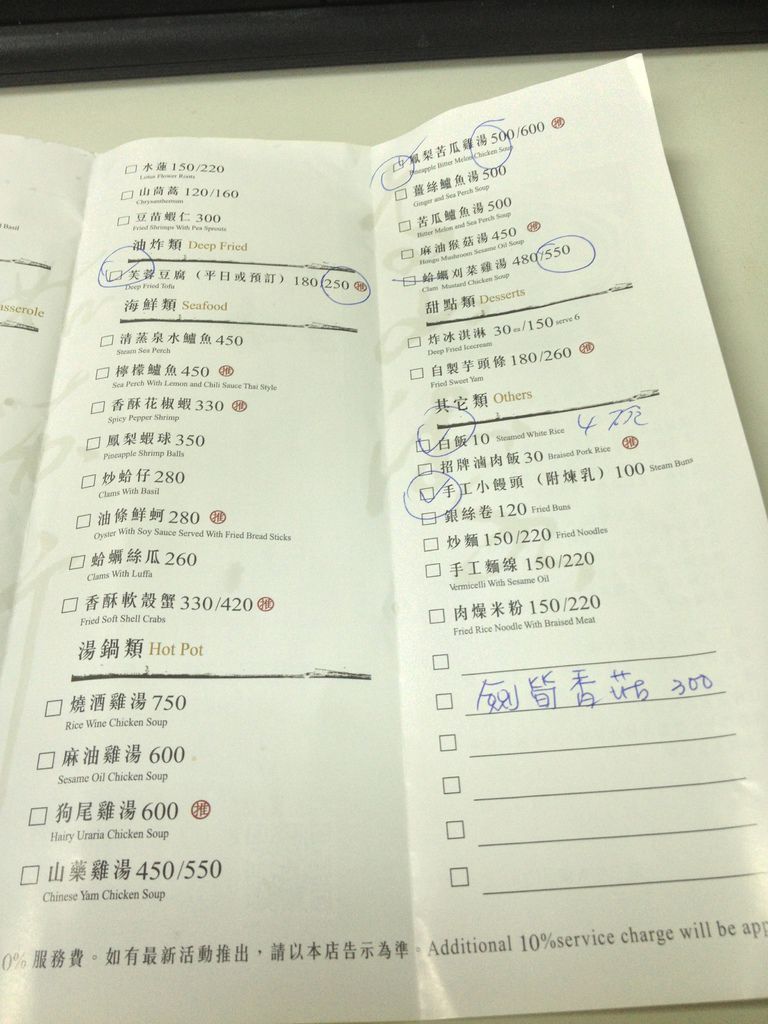 Basil
asserole
水蓮 150/220
Lotus Flower Roots
山茼蒿 120/160
Chrysanthemum
豆苗蝦仁 300
Fried Shrimps With Pea Sprouts
油炸類 Deep Fried
芙蓉豆腐（平日或預訂）180/250 推
Deep Fried Tofu
海鮮類 Seafood
清蒸泉水鱸魚 450
Steam Sea Perch
檸檬鱸魚 450 推
Sea Perch With Lemon and Chili Sauce Thai Style
香酥花椒蝦 330 推
Spicy Pepper Shrimp
鳳梨蝦球 350
Pineapple Shrimp Balls
炒蛤仔 280
Clams With Basil
油條鮮蚵 280 推
Oyster With Soy Sauce Served With Fried Bread Sticks
蛤蠣絲瓜 260
Clams With Luffa
香酥軟殼蟹 330/420 推
Fried Soft Shell Crabs
湯鍋類 Hot Pot
燒酒雞湯 750
Rice Wine Chicken Soup
麻油雞湯 600
Sesame Oil Chicken Soup
狗尾雞湯 600 推
Hairy Uraria Chicken Soup
山藥雞湯 450/550
Chinese Yam Chicken Soup
鳳梨苦瓜雞湯 500/600 推
Pineapple Bitter Melon Chicken Soup
薑絲鱸魚湯 500
Ginger and Sea Perch Soup
苦瓜鱸魚湯 500
Bitter Melon and Sea Perch Soup
麻油猴菇湯 450 推
Hongu Mushroom Sesame Oil Soup
蛤蠣刈菜雞湯 480/550
Clam Mustard Chicken Soup
甜點類 Desserts
炸冰淇淋 30 ea/150 serve 6
Deep Fried Icecream
自製芋頭條 180/260 推
Fried Sweet Yam
其它類 Others
白飯 10 Steamed White Rice 4碗
招牌滷肉飯 30 Braised Pork Rice 推
手工小饅頭（附煉乳）100 Steam Buns
銀絲卷 120 Fried Buns
炒麵 150/220 Fried Noodles
手工麵線 150/220
Vermicelli With Sesame Oil
肉燥米粉 150/220
Fried Rice Noodle With Braised Meat
劍筍香菇 300
0% 服務費。如有最新活動推出，請以本店告示為準。Additional 10%service charge will be app